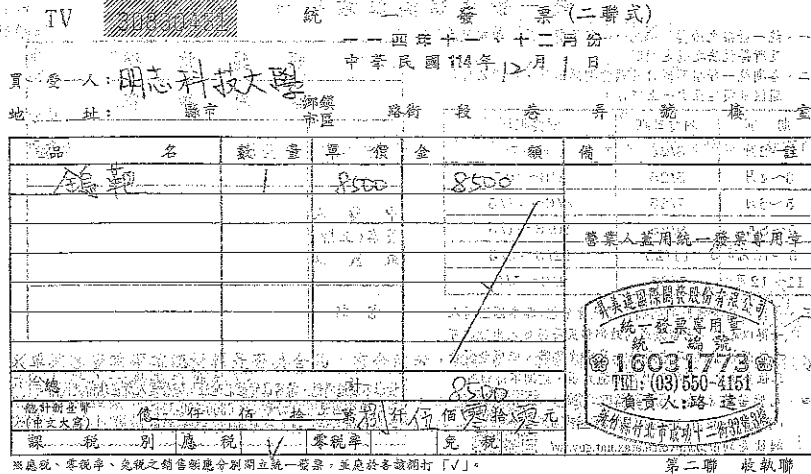 TV 統一發票(二聯式)
一一四年十一、十二月份
中華民國114年12月1日
買受人:明志科技大學
地址: 縣市 鄉鎮市區 路街 段 巷 弄 號 樓 室
品名 數量 單價 金額 備註
1 8500 8500
營業人蓋用統一發票專用章
統一發票專用章
統一編號
16031773
TEL:(03)550-4151
負責人:路
總計 8500
總計新台幣(中文大寫) 億 仟 佰 拾 萬 捌仟伍佰零拾零元
課稅別 應稅 √ 零稅率 免稅
※應稅、零稅率、免稅之銷售額應分別開立統一發票,並應於各該欄打「√」。
第二聯 收執聯